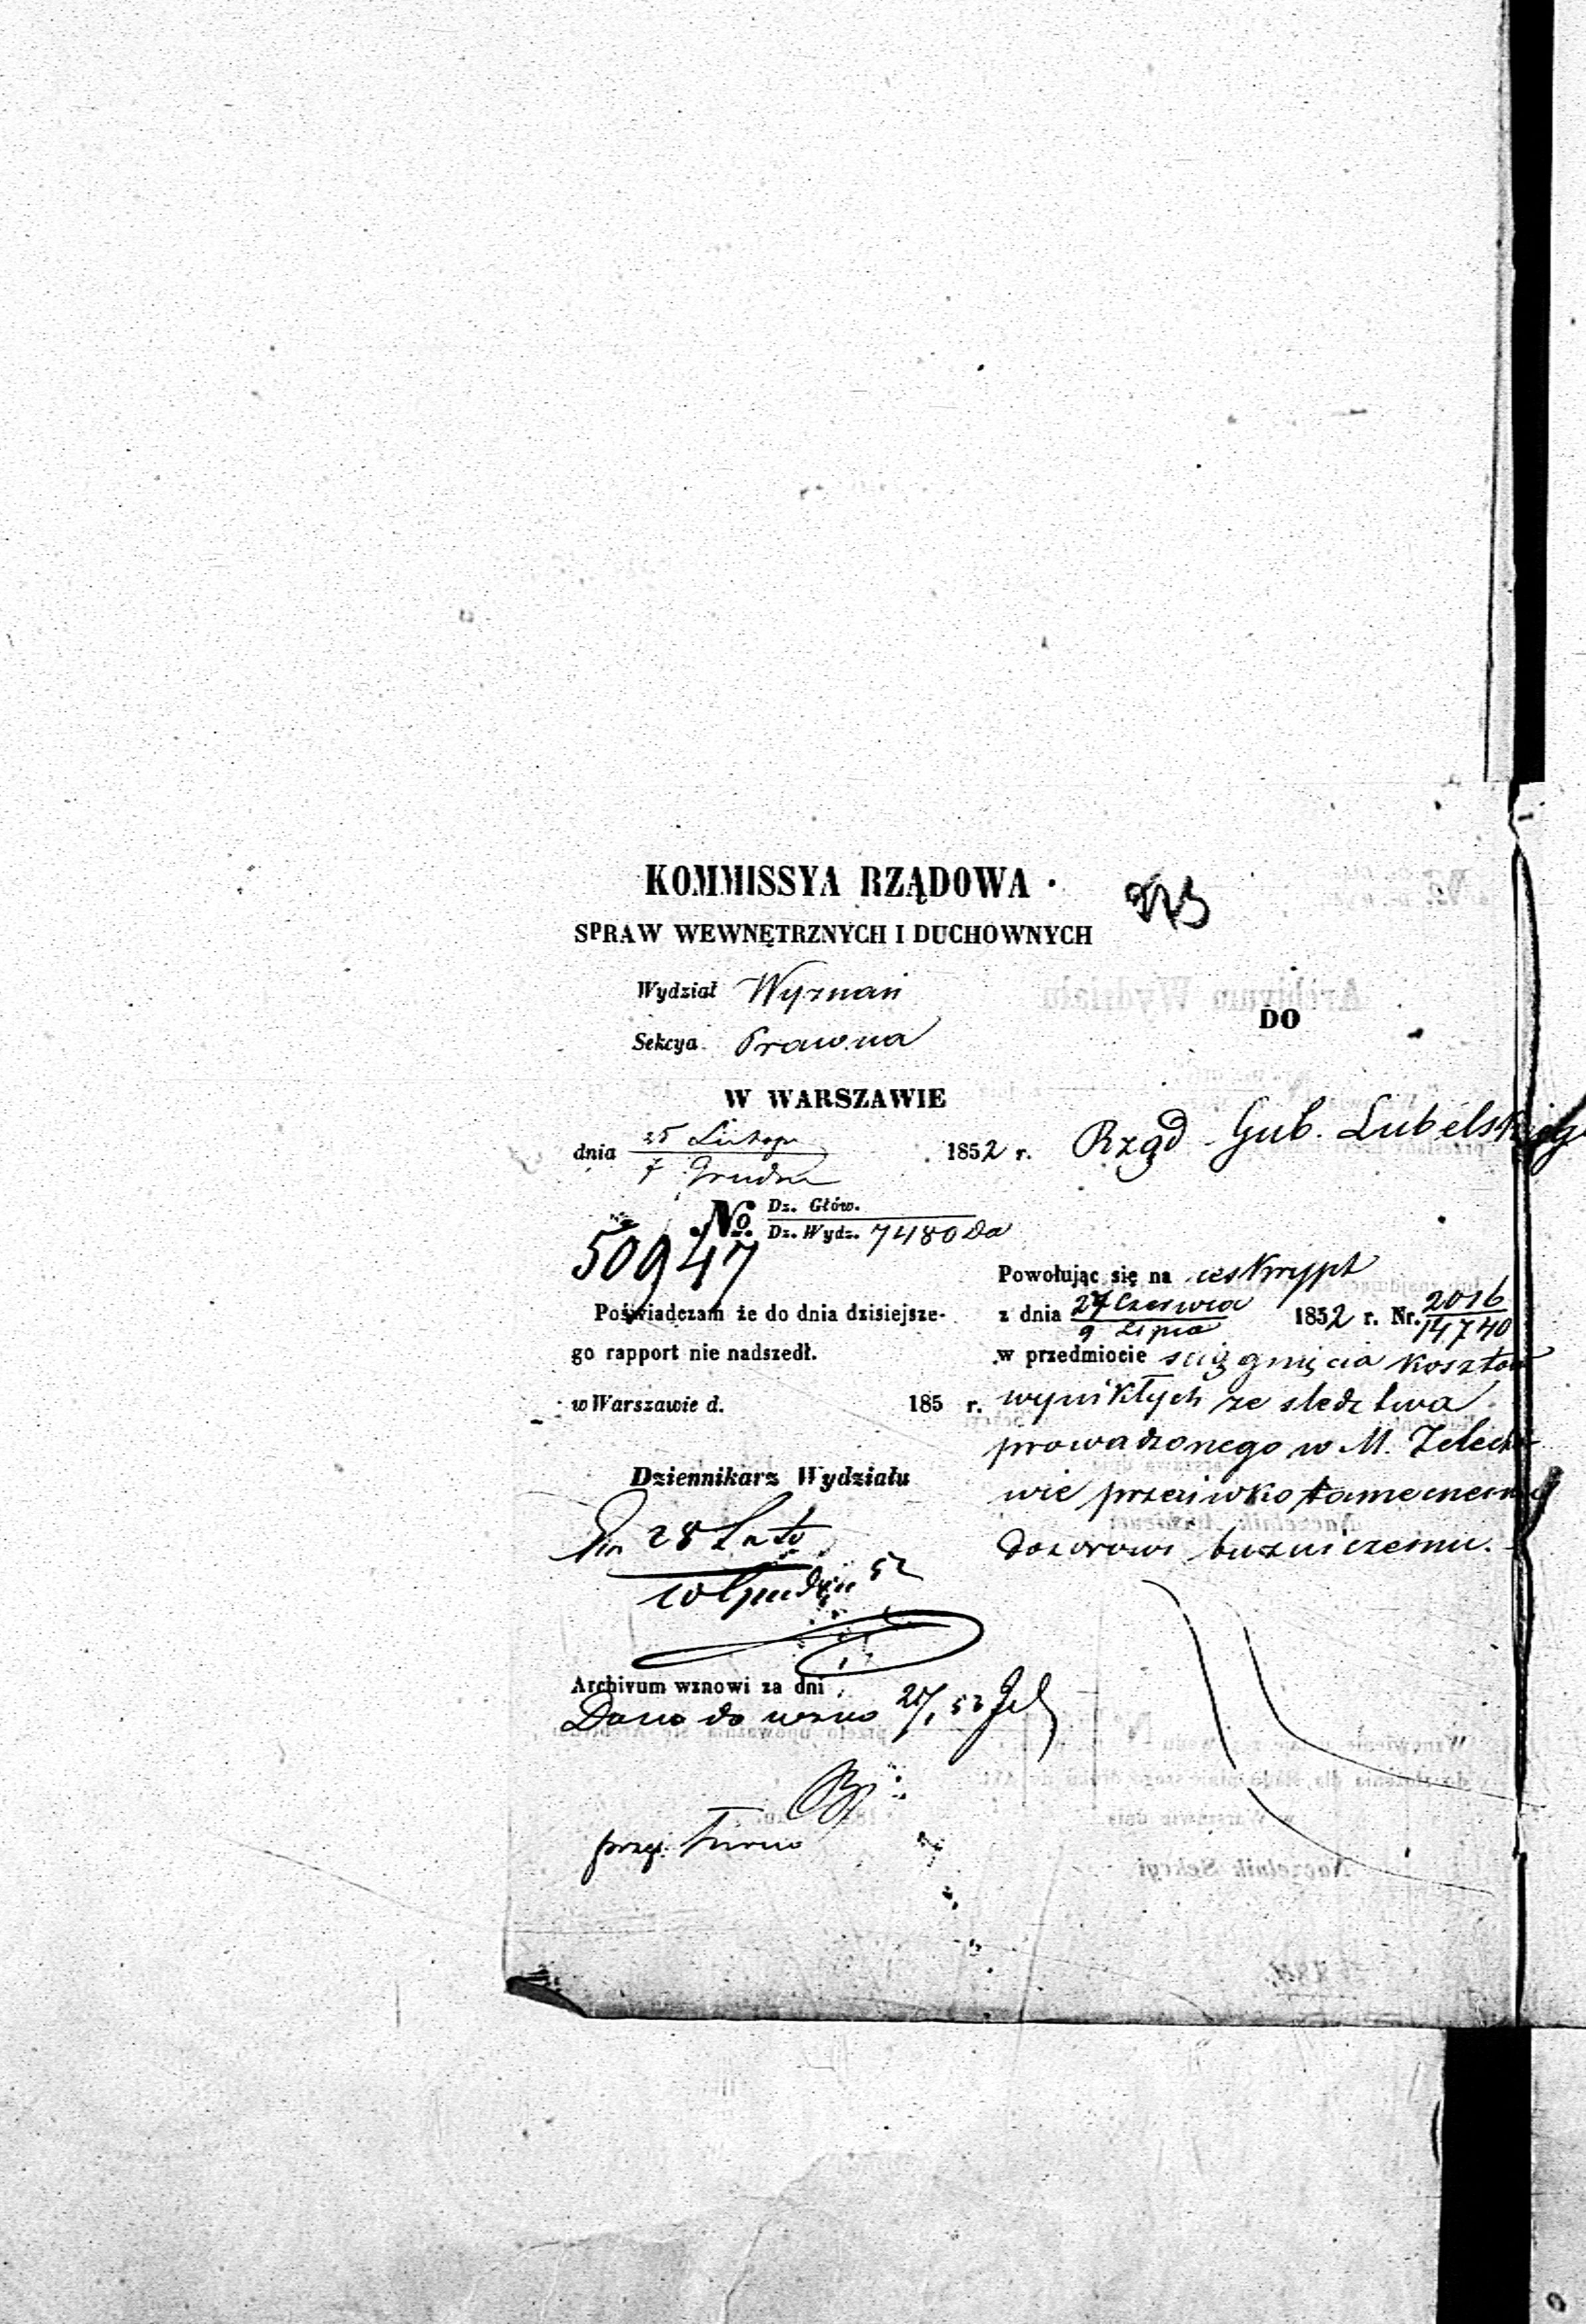 KOMMISSYA RZĄDOWA
SPRAW WEWNĘTRZNYCH I DUCHOWNYCH
Wydział Wyznań
Sekcya Prawna
W WARSZAWIE
dnia 25 Listop 1852 r.
7 Grudn
No. Dz. Głów.
Dz. Wydz. 7480
50947
Poświadczam że do dnia dzisiejsze-
go rapport nie nadszedł.
w Warszawie d. 185 r.
Dziennikarz Wydziału
28
10 52
Archivum wznowi za dni
do
DO
Rząd Gub. Lubelskiego
Powołując się na reskrypt
z dnia 27 Czerwca 1852 r. Nr. 2016
9 Lipca 14740
w przedmiocie ściągnięcia kosztów
wynikłych ze śledztwa
prowadzonego w M. Żelecho-
wie przeciwko tamecznemu
dozorowi bużniczemu.